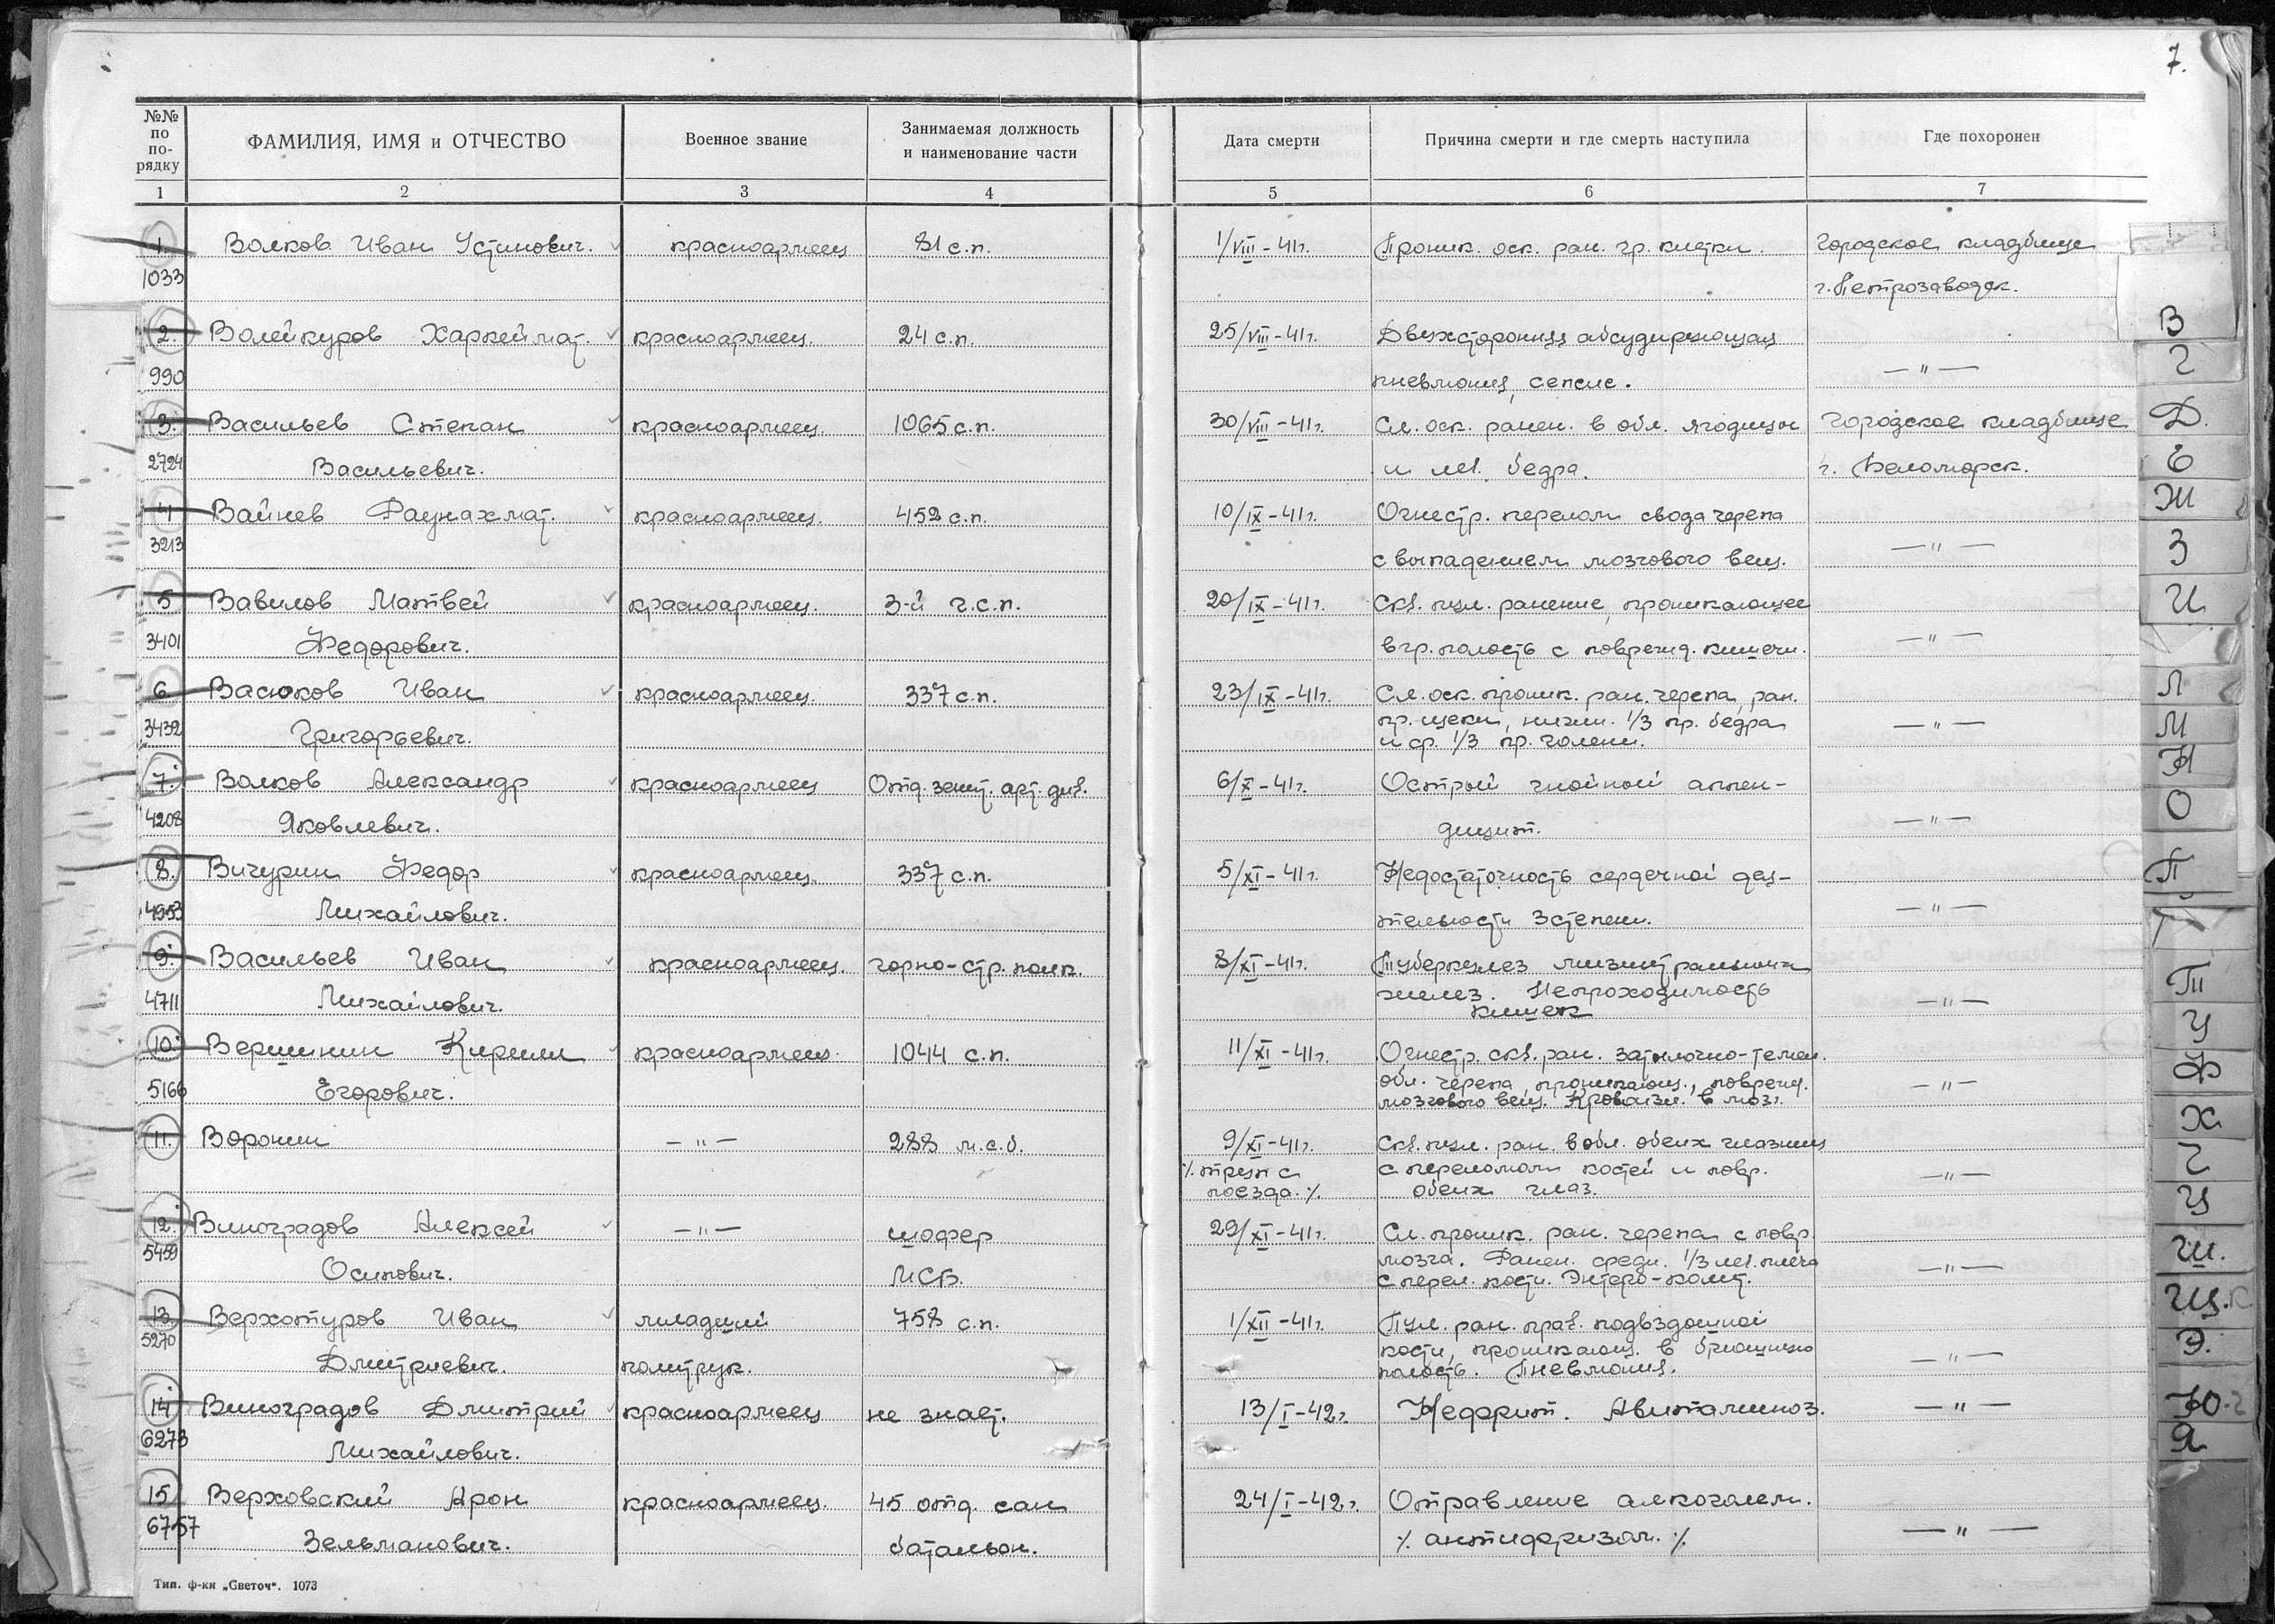 7.
№№ по по- рядку
ФАМИЛИЯ, ИМЯ и ОТЧЕСТВО
Военное звание
Занимаемая должность и наименование части
Дата смерти
Причина смерти и где смерть наступила
Где похоронен
1 2 3 4 5 6 7
1. Волков Иван Устинович. красноармеец 81 с.п. 1/VIII-41г. Проник. оск. ран. гр. клетки. Городское кладбище
1033 г. Петрозаводск.
2. Волейкуров Харкеймат. красноармеец. 24 с.п. 25/VIII-41г. Двухсторонняя абсудирующая
990 пневмония, сепсис. —"—
3. Васильев Степан красноармеец. 1065 с.п. 30/VIII-41г. Сл. оск. ранен. в обл. ягодицы Городское кладбище
2724 Васильевич. и лев. бедра. г. Беломорск.
4 Вайнев Фаунахмат. красноармеец. 452 с.п. 10/IX-41г. Огнестр. перелом свода черепа
3213 с выпадением мозгового вещ. —"—
5 Вавилов Матвей красноармеец. 3-й г.с.п. 20/IX-41г. Скв. пул. ранение, проникающее
3401 Федорович. в гр. полость с поврежд. кишечн. —"—
6 Васюков Иван красноармеец. 337 с.п. 23/IX-41г. Сл. оск. проник. ран. черепа, ран.
3432 Григорьевич. пр. щеки, нижн. 1/3 пр. бедра —"—
и ср. 1/3 пр. голени.
7. Волков Александр красноармеец Отд. зенит. арт. див. 6/X-41г. Острый гнойный аппен-
4208 Яковлевич. дицит. —"—
8. Вичурин Федор красноармеец. 337 с.п. 5/XI-41г. Недостаточность сердечной дея-
4953 Михайлович. тельности 3 степени. —"—
9. Васильев Иван красноармеец. горно-стр. полк. 8/XI-41г. Туберкулез
4711 Михайлович. желез. Непроходимость —"—
кишек
10. Вершинин Кирилл красноармеец. 1044 с.п. 11/XI-41г. Огнестр. скв. ран. затылочно-темен.
5166 Егорович. обл. черепа, проникающ., поврежд. —"—
мозгового вещ. Кровоизл. в мозг.
11. Воронин —"— 288 м.с.б. 9/XI-41г. Скв. пул. ран. в обл. обеих глазниц
٪ труп с с переломом костей и повр. —"—
поезда. ٪ обеих глаз.
12. Виноградов Алексей —"— шофер 29/XI-41г. Сл. проник. ран. черепа с повр.
5459 мозга. Ранен. средн. 1/3 лев. плеча
Осипович. МСБ. с перел. кости. Энтеро-колит. —"—
13. Верхотуров Иван младший 758 с.п. 1/XII-41г. Пул. ран. прав. подвздошной
5270 кости, проникающ. в брюшную
Дмитриевич. политрук. полость. Пневмония. —"—
14. Виноградов Дмитрий красноармеец не знает. 13/I-42г. Нефрит. Авитаминоз. —"—
6273 Михайлович.
15 Верховский Арон красноармеец. 45 отд. сан 24/I-42г. Отравление алкоголем.
6757 Зельманович. батальон. ٪ антифризом. ٪ —"—
Тип. ф-ки „Светоч“. 1073
В
Г
Д.
Е
Ж
З
И
Л
М
Н
О
П
Т
У
Ф
Х
Ч
Ц
Ш.
Щ.
Э.
Ю.
Я